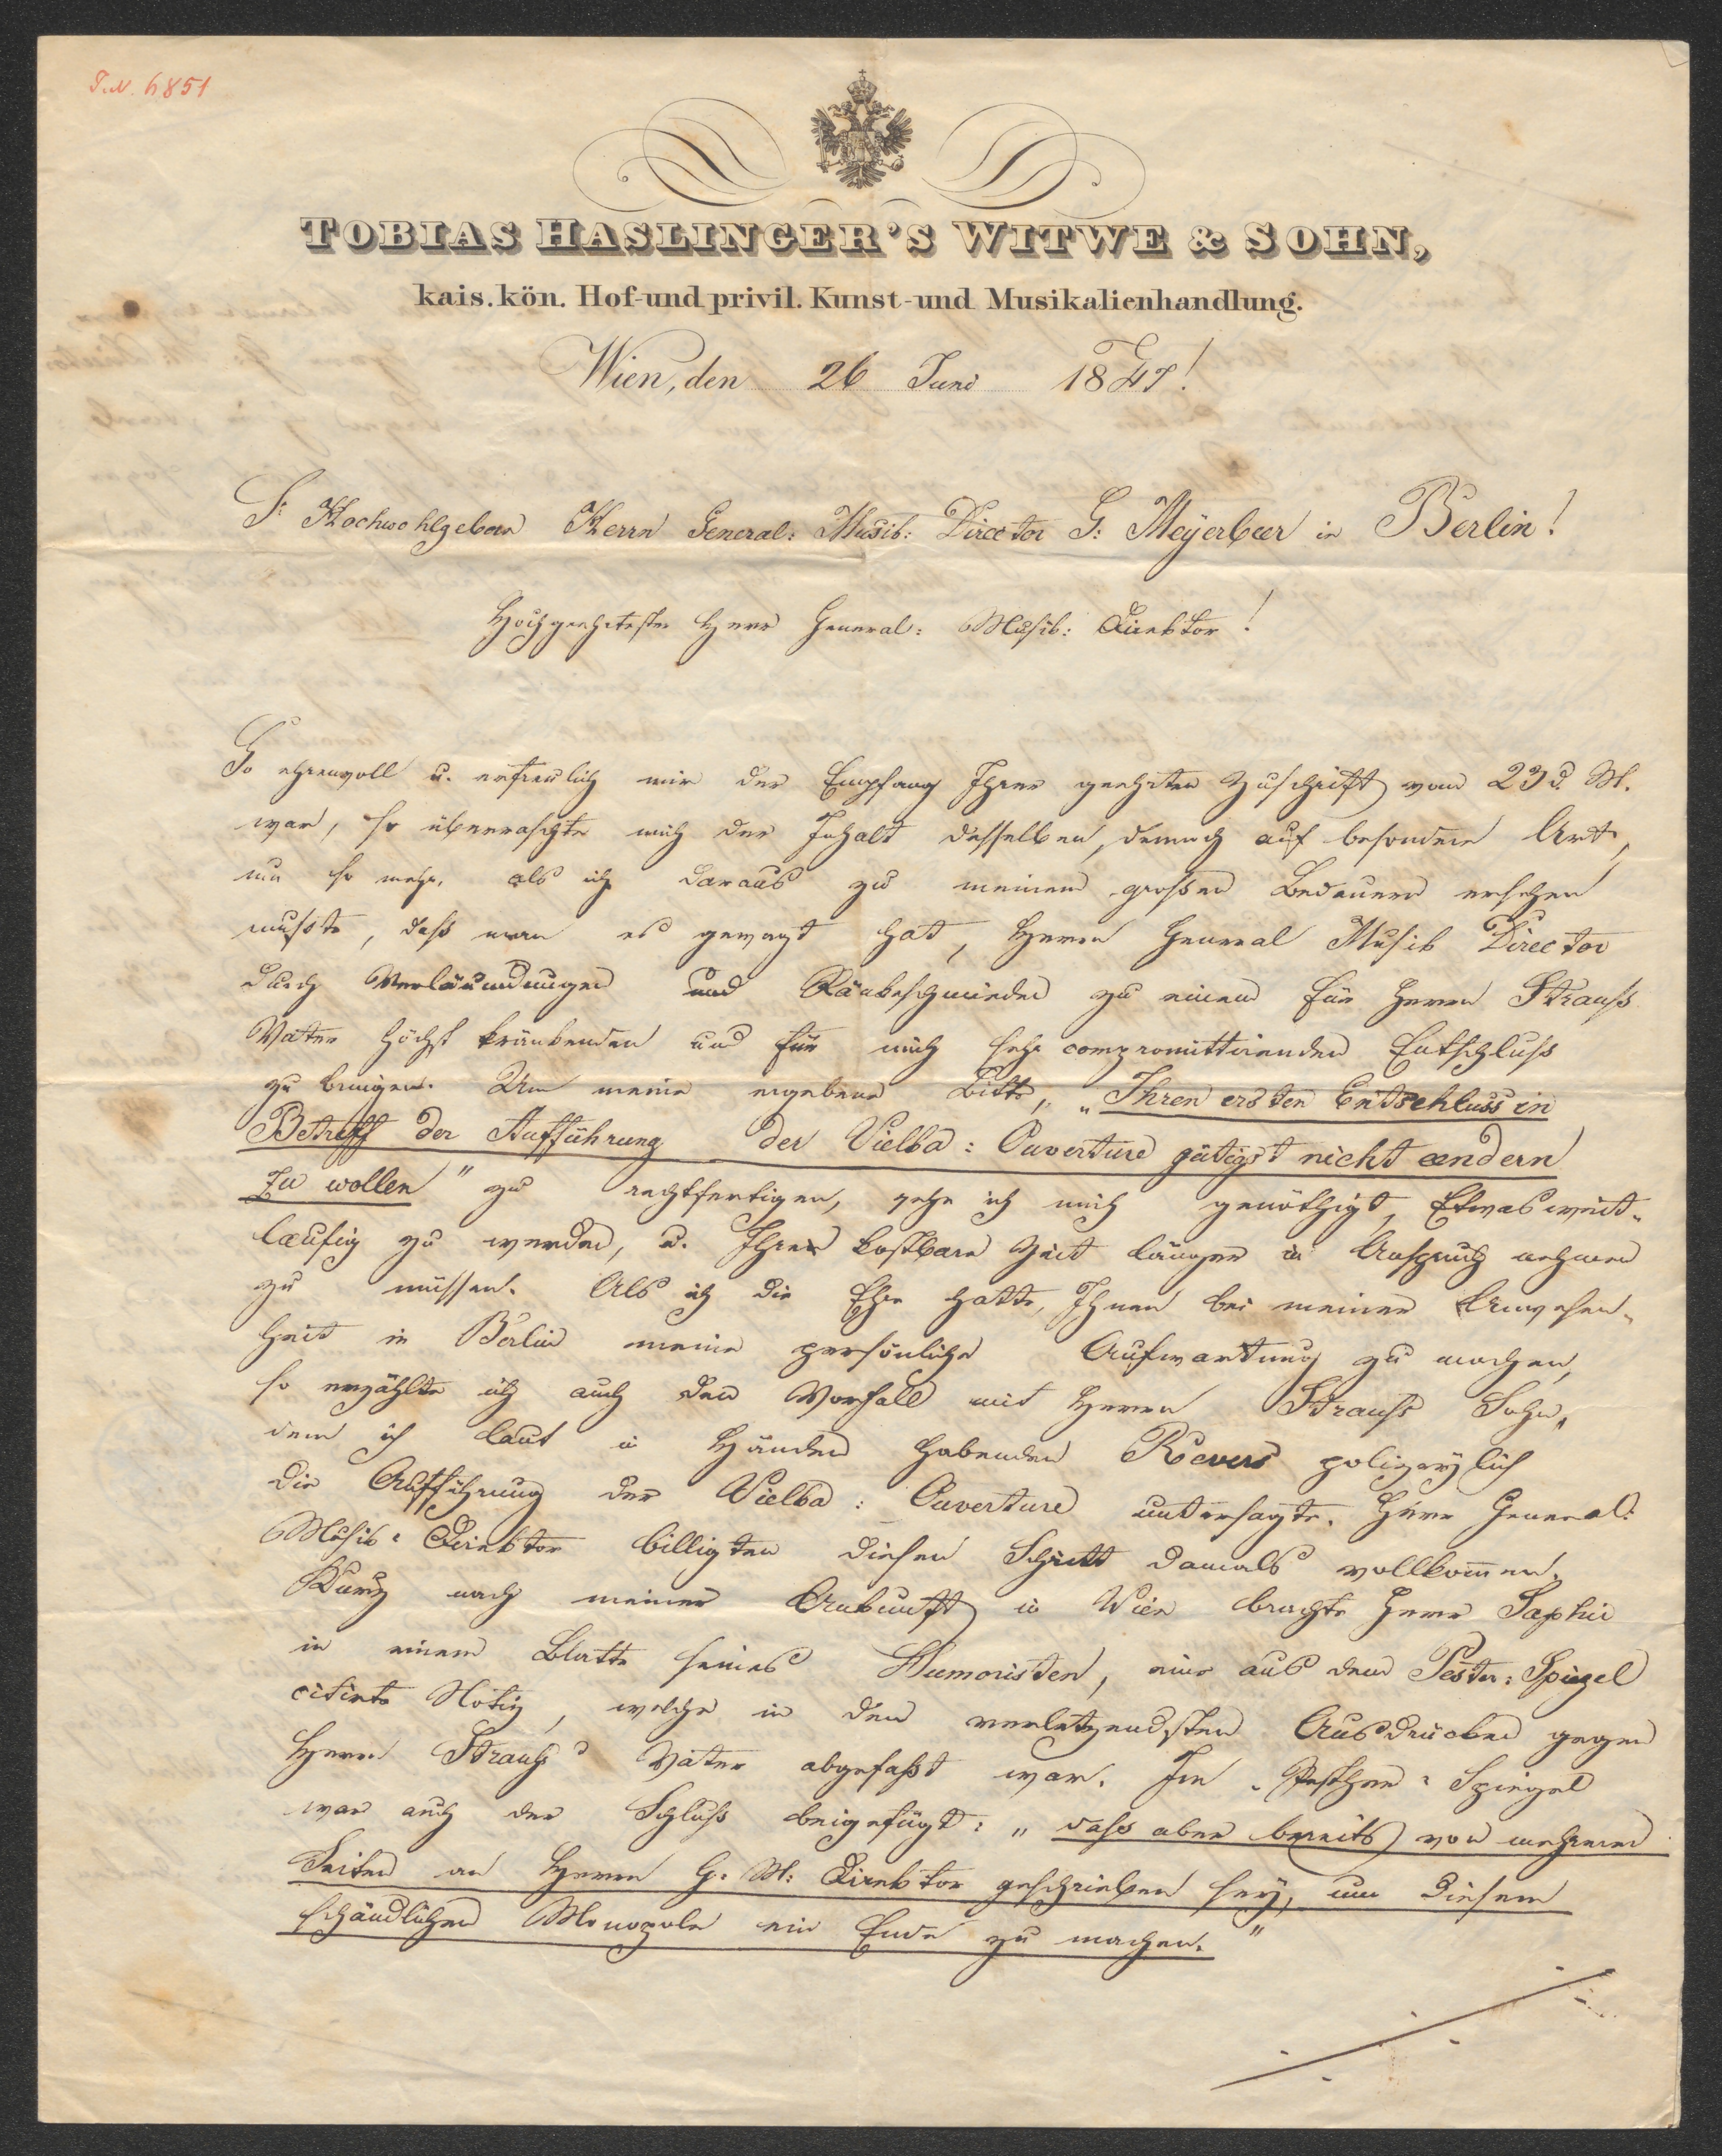 I.N. 6851
TOBIAS HASLINGER'S WITWE & SOHN,
kais. kön. Hof- und privil. Kunst- und Musikalienhandlung.
Wien, den 26 Juni 1847!
Sr Hochwohlgeborn Herrn General: Musik: Director G: Meyerbeer in Berlin!
Hochgeehrtester Herr General: Musik: Direktor!
So ehrenvoll u. erfreulich mir der Empfang Ihrer geehrten Zuschrift vom 23 d. M.
war, so überraschte mich der Inhalt desselben, dennoch auf besondere Art,
um so mehr, als ich daraus zu meinem großen Bedauern ersehen
mußte, daß man es gewagt hat, Herrn General Musik Director
durch Verläumdungen und Ränkeschmieden zu einem für Herrn Strauß
Vater höchst kränkenden und für mich sehr compromittirenden Entschluss
zu bringen. Um meine ergebene Bitte, „Ihren ersten Entschluss in
Betreff der Aufführung der Vielka: Ouverture gütigst nicht aendern
zu wollen" zu rechtfertigen, sehe ich mich genöthigt, Etwas weit-
laeufig zu werden, u. Ihre kostbare Zeit länger in Anspruch nehmen
zu müssen. Als ich die Ehre hatte, Ihnen bei meiner Anwesen-
heit in Berlin meine persönliche Aufwartung zu machen,
so erzählte ich auch den Vorfall mit Herrn Strauss Sohn,
dem ich laut in Händen habenden Revers polizeylich
die Aufführung der Vielka: Ouverture untersagte. Herr General:
Musik: Direktor billigten diesen Schritt damals vollkommen.
Kurz nach meiner Ankunft in Wien brachte Herr Saphir
in einem Blatte seines Humoristen, eine aus dem Pester: Spiegel
citirte Notiz, welche in den verletzendsten Ausdrücken gegen
Herrn Strauss Vater abgefaßt war. Im Pesther: Spiegel
war auch der Schluß beigefügt: „dass aber bereits von mehreren
Seiten an Herrn G: M: Direktor geschrieben sey, um diesem
schändlichen Monopole ein Ende zu machen."